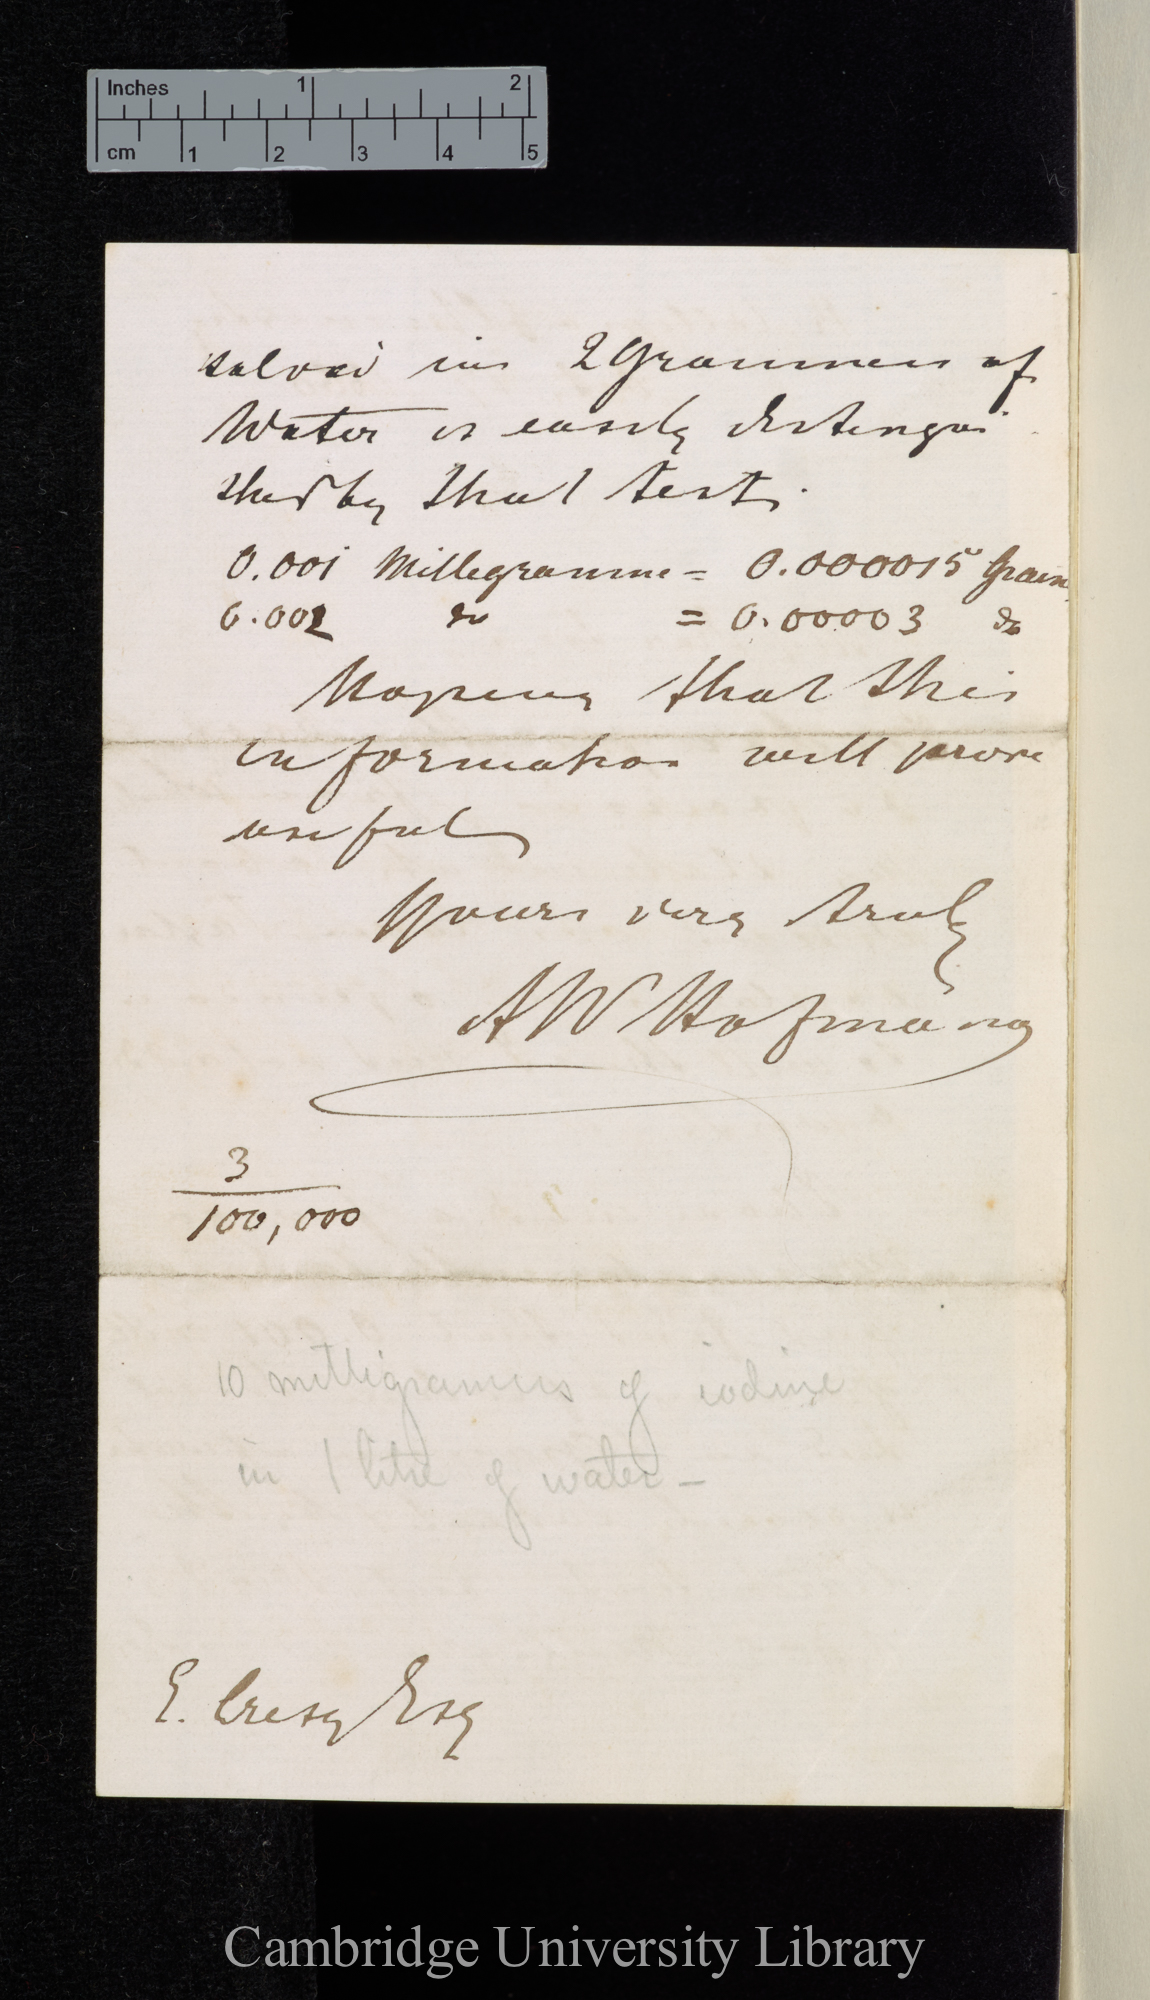 Inches 1 2
cm 1 2 3 4 5
solved in 2 Grammes of
Water is easily distingui
shed by that test.
0.001 Millegramme = 0.000015 Grain
0.002 do = 0.00003 do
Hoping that this
information will prove
useful
Yours very truly
AW Hofmann
3
100,000
10 milligrammes of iodine
in 1 litre of water –
E. Cresy Esq
Cambridge University Library